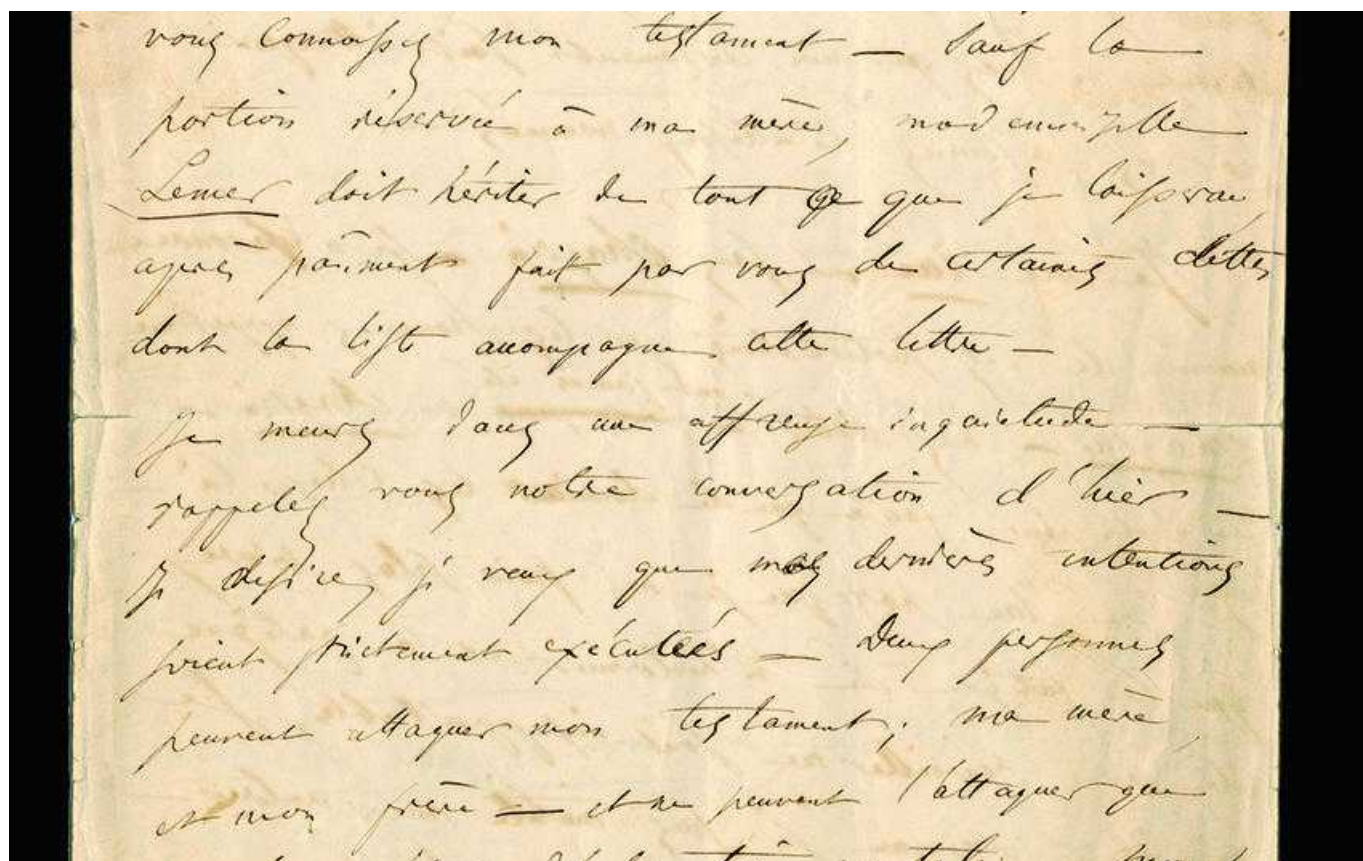 vous connaissez mon testament — Sauf la
portion réservée à ma mère, mademoiselle
Lemer doit hériter de tout ce que je laisserai,
après paiment fait par vous de certaines dettes
dont la liste accompagne cette lettre —
Je meurs dans une affreuse inquiétude —
rappelez vous notre conversation d'hier —
Je désire, je veux que mes dernières intentions
soient strictement exécutées — Deux personnes
peuvent attaquer mon testament; ma mère,
et mon frère — et ne peuvent l'attaquer que